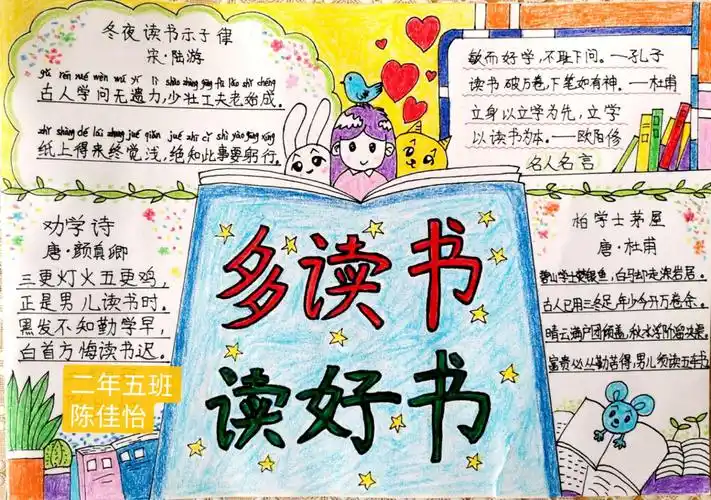 冬夜读书示子律
宋·陆游
gǔ rén xué wèn wú yí lì shào zhuàng gōng fu lǎo shǐ chéng
古人学问无遗力,少壮工夫老始成。
zhǐ shàng dé lái zhōng jué qiǎn jué zhī cǐ shì yào gōng xíng
纸上得来终觉浅,绝知此事要躬行。
敏而好学,不耻下问。—孔子
读书破万卷,下笔如有神。—杜甫
立身以立学为先,立学
以读书为本。—欧阳修
名人名言
多读书
读好书
劝学诗
唐·颜真卿
三更灯火五更鸡,
正是男儿读书时。
黑发不知勤学早,
白首方悔读书迟。
二年五班
陈佳怡
柏学士茅屋
唐·杜甫
碧山学士焚银鱼,白马却走深岩居。
古人已用三冬足,年少今开万卷余。
晴云满户团倾盖,秋水浮阶溜决渠。
富贵必从勤苦得,男儿须读五车书。